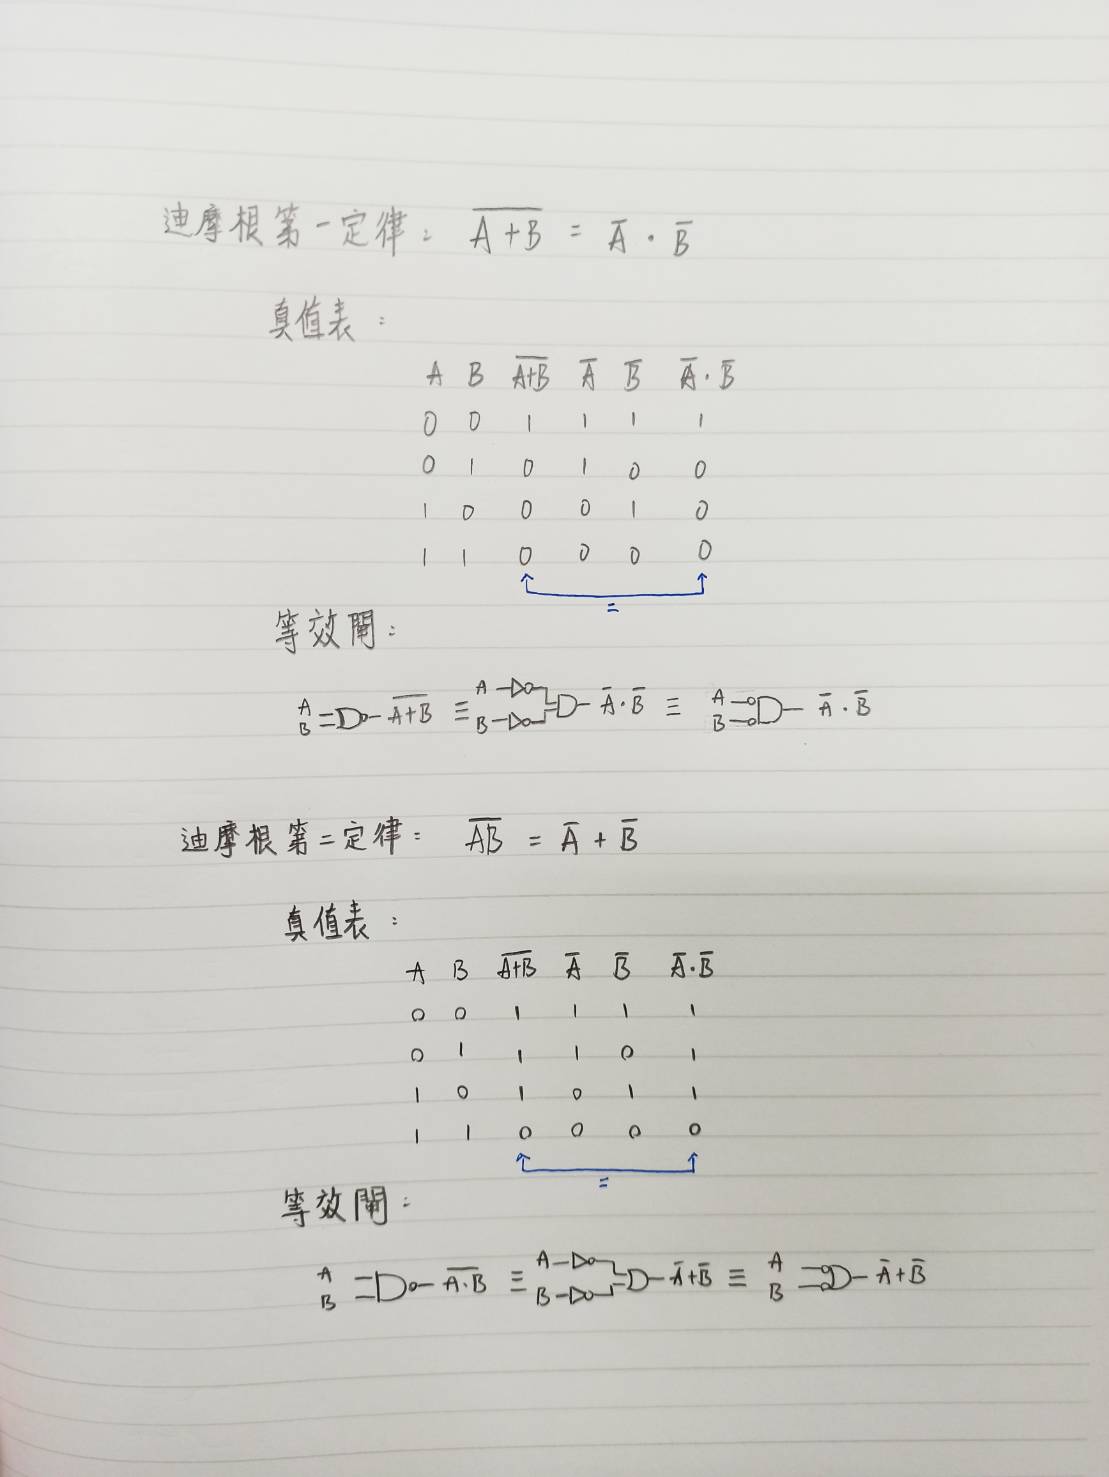 迪摩根第一定律： A̅+̅B̅ = A̅ · B̅
真值表：
A B A̅+̅B̅ A̅ B̅ A̅·B̅
0 0 1 1 1 1
0 1 0 1 0 0
1 0 0 0 1 0
1 1 0 0 0 0
=
等效閘：
A B A̅+̅B̅ ≡ A B A̅·B̅ ≡ A B A̅·B̅
迪摩根第二定律： A̅B̅ = A̅ + B̅
真值表：
A B A̅+̅B̅ A̅ B̅ A̅·B̅
0 0 1 1 1 1
0 1 1 1 0 1
1 0 1 0 1 1
1 1 0 0 0 0
=
等效閘：
A B A̅·̅B̅ ≡ A B A̅+B̅ ≡ A B A̅+B̅